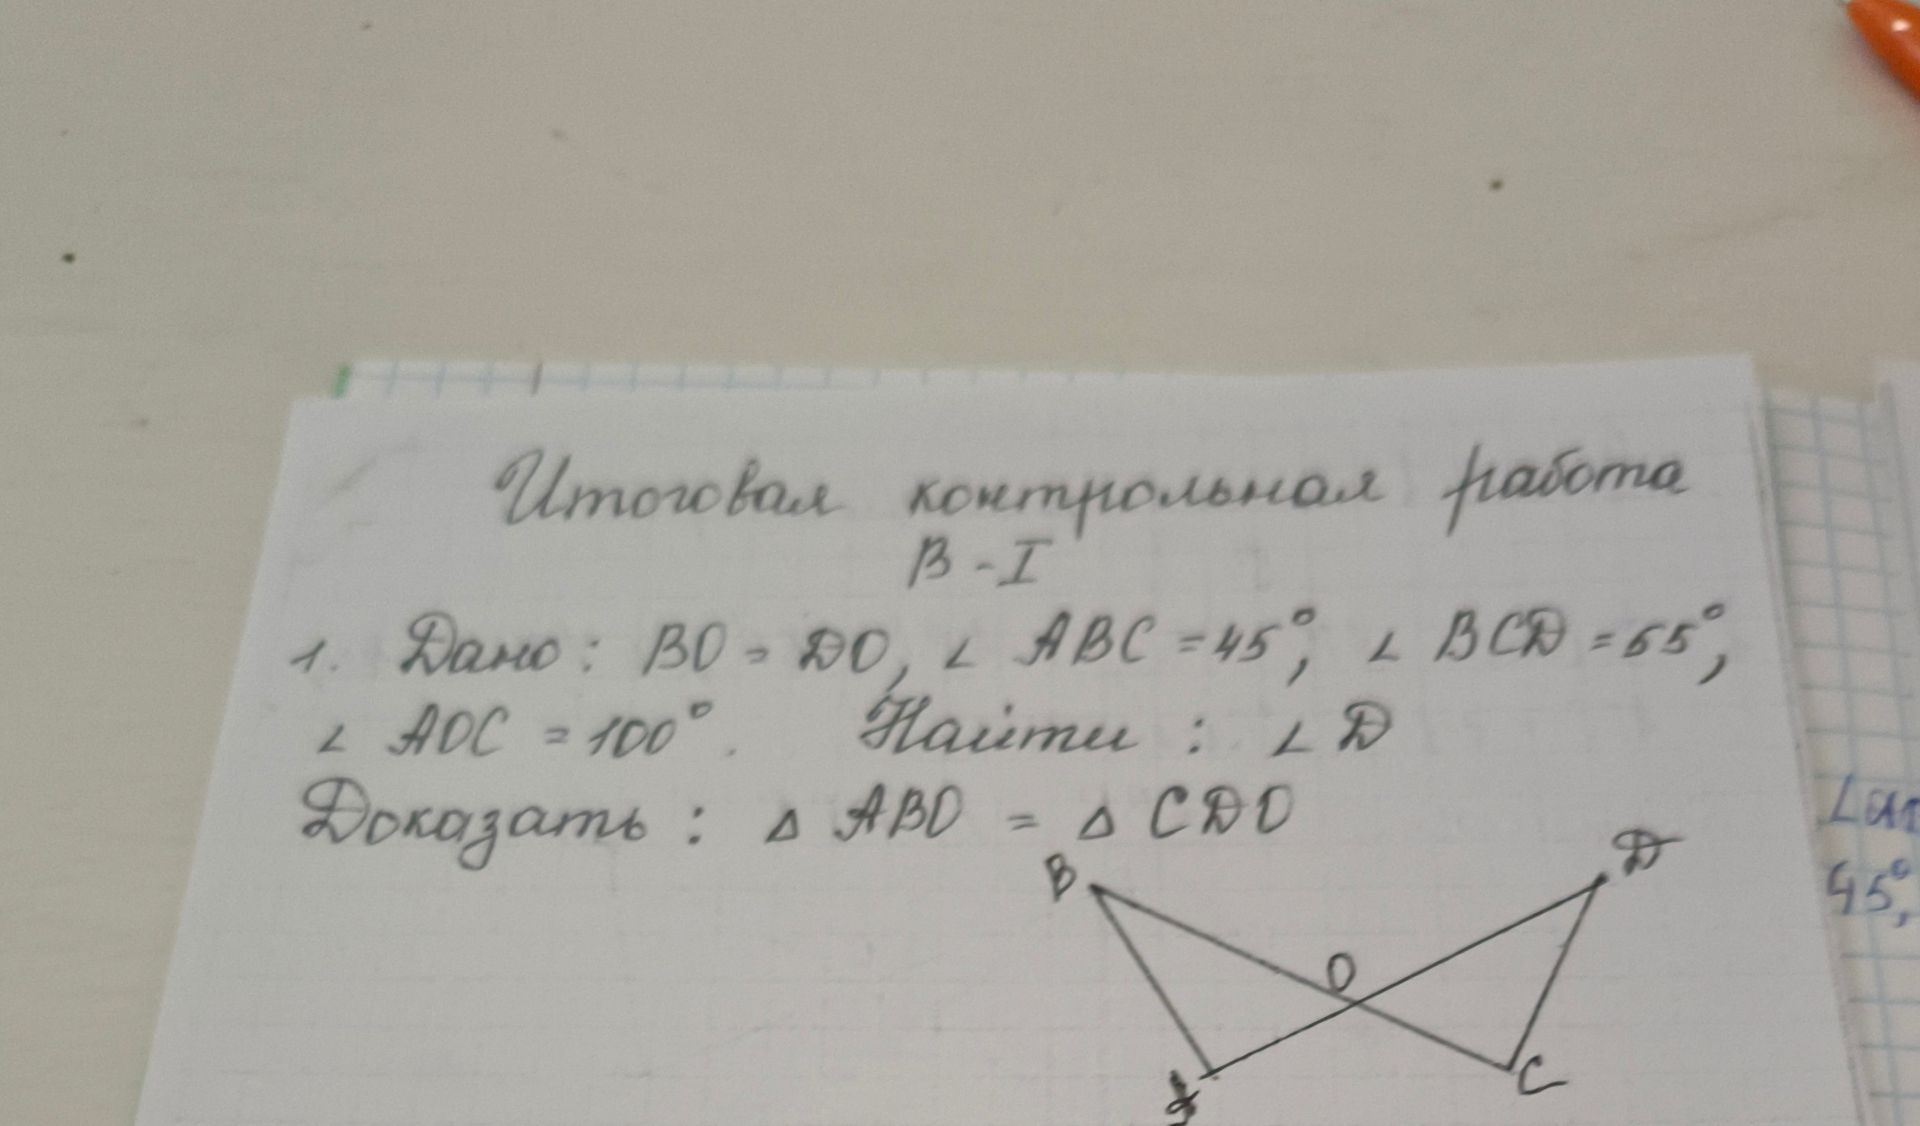 Итоговая контрольная работа
В - I
1. Дано: BO = DO, ∠ ABC = 45°, ∠ BCD = 55°,
∠ AOC = 100°. Найти : ∠ D
Доказать : △ ABO = △ CDO
B
D
O
A
C
45°,